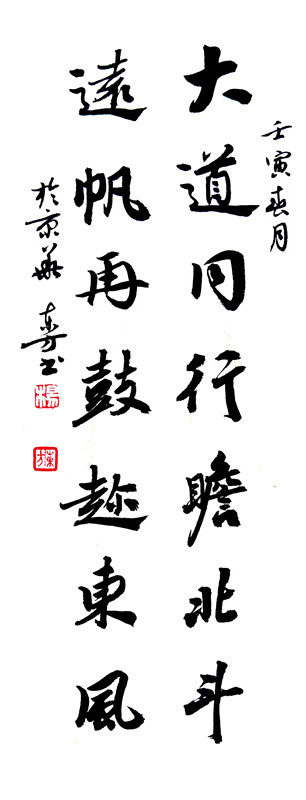 壬寅春月
大道同行瞻北斗
遠帆再鼓�, 東風
於京華 书
楊